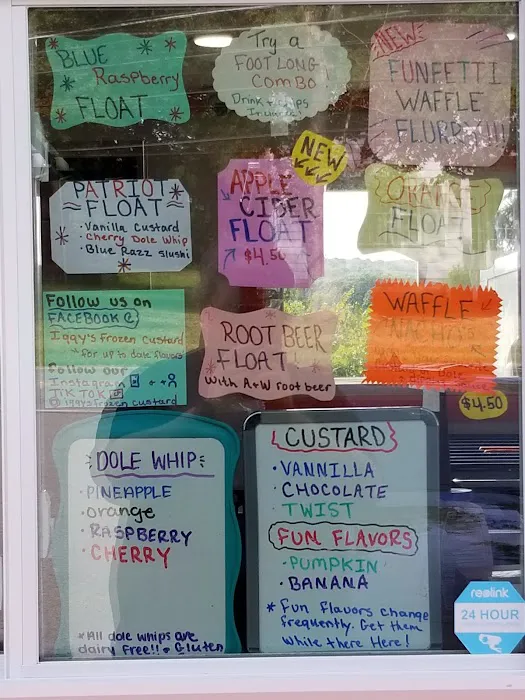 BLUE
Raspberry
FLOAT
Try a
FOOT LONG
COMBO
Drink + Chips
Included!
NEW
FUNFETTI
WAFFLE
FLURRY!!!!
PATRIOT
FLOAT
• Vanilla Custard
• Cherry Dole Whip
• Blue Razz slushi
NEW
APPLE
CIDER
FLOAT
$4.50
ORANGE
FLOAT
Follow us on
FACEBOOK @
Iggy's Frozen Custard
*for up to date flavors
Follow our
Instagram
TIKTOK
@iggysfrozen custard
ROOT BEER
FLOAT!
with A+W root beer
WAFFLE
NACHO'S
$4.50
DOLE WHIP
• PINEAPPLE
• orange
• RASPBERRY
• CHERRY
*All dole whips are
dairy free!! + Gluten
CUSTARD
• VANNILLA
• CHOCOLATE
TWIST
FUN FLAVORS
• PUMPKIN
• BANANA
* Fun flavors change
frequently. Get them
While there Here!
reolink
24 HOUR